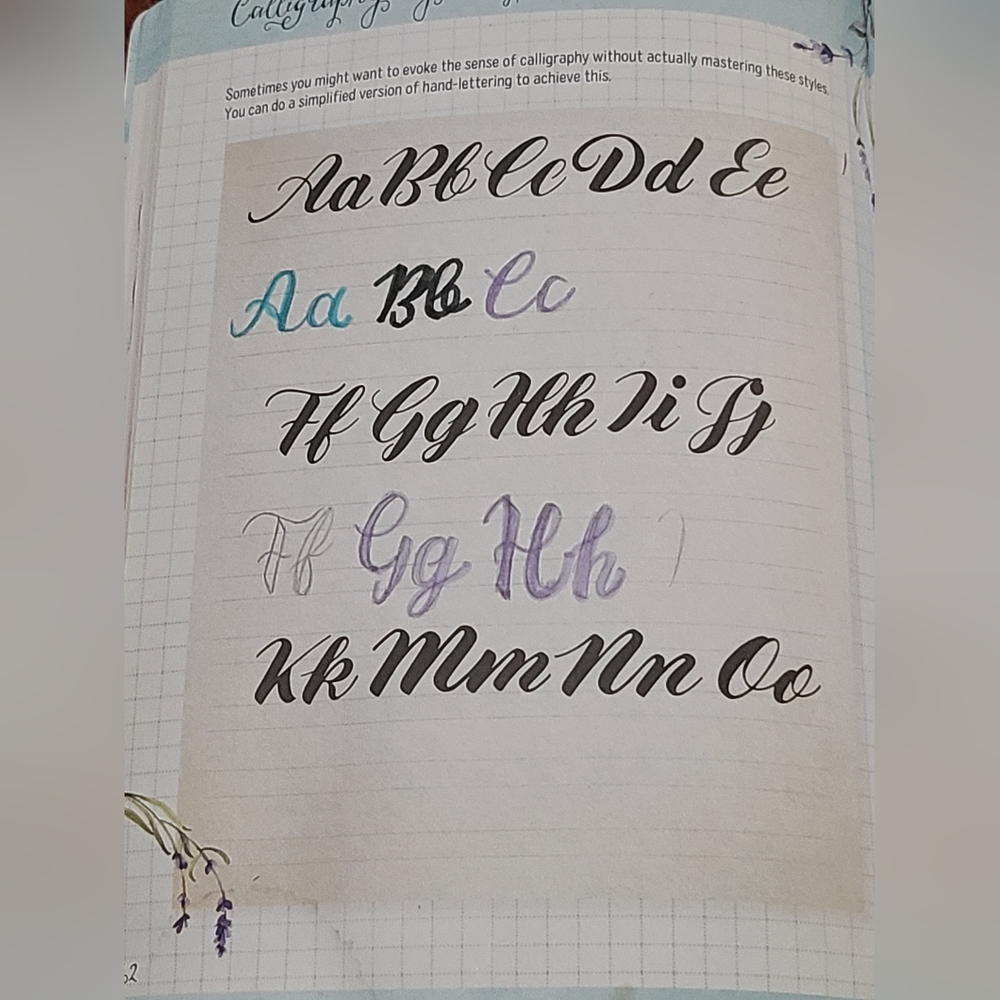 Sometimes you might want to evoke the sense of calligraphy without actually mastering these styles.
You can do a simplified version of hand-lettering to achieve this.
Aa Bb Cc Dd Ee
Aa Bb Cc
Ff Gg Hh Ii Jj
Ff Gg Hh
Kk Mm Nn Oo